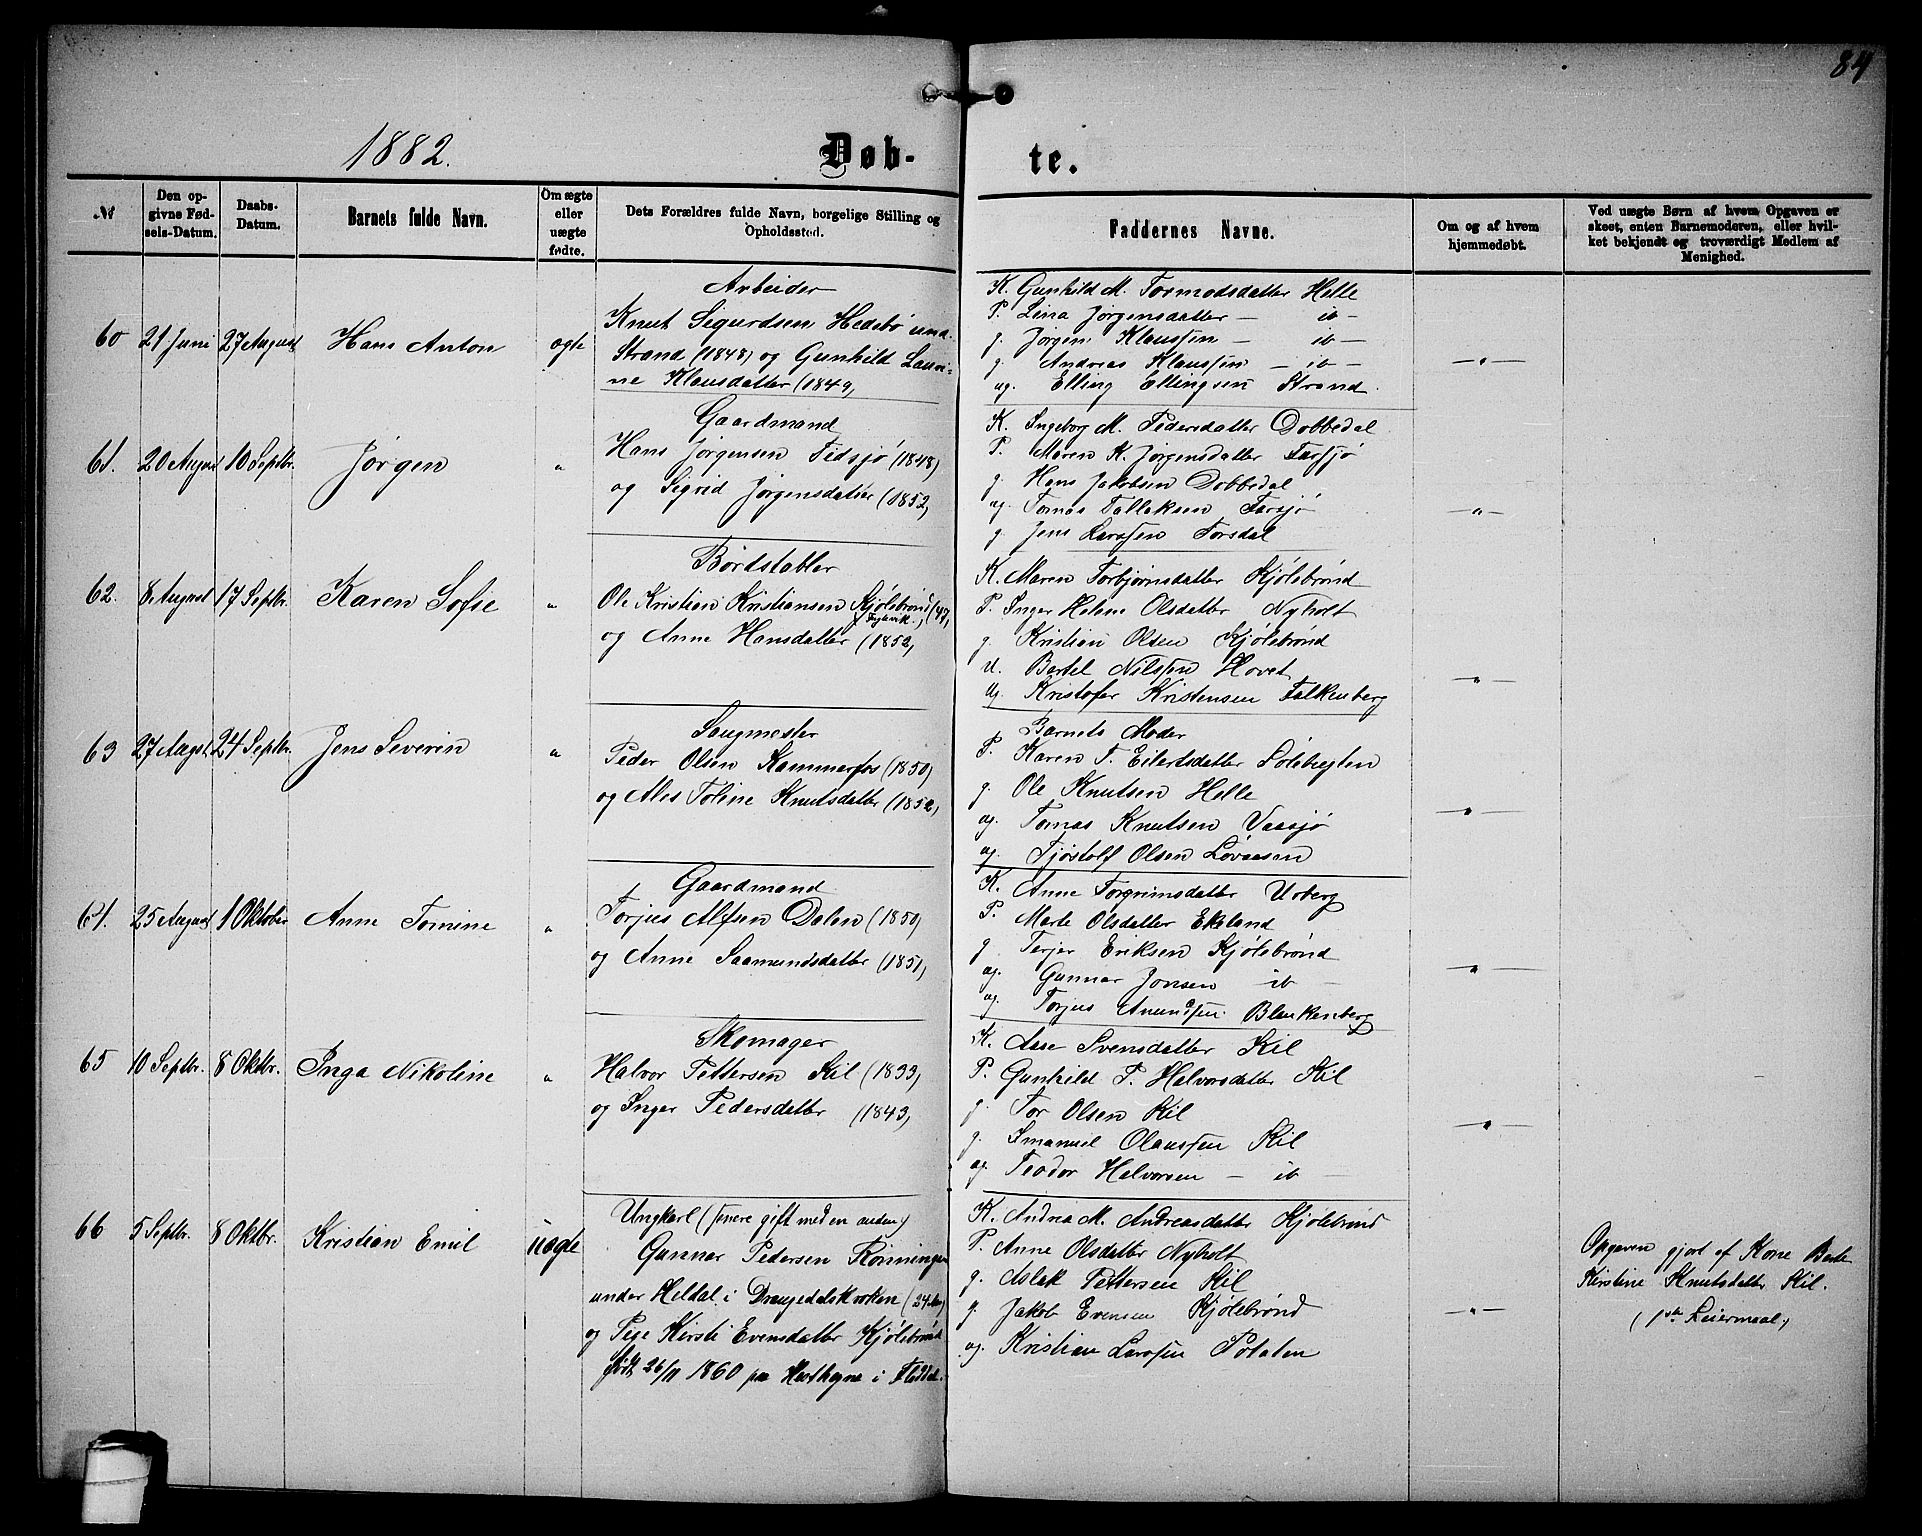 84
1882.
Døb-
te.
№
Den op-
givne Fød-
sels-Datum.
Daabs-
Datum.
Barnets fulde Navn.
Om ægte
eller
uægte
fødte.
Dets Forældres fulde Navn, borgelige Stilling og
Opholdssted.
Faddernes Navne.
Om og af hvem
hjemmedøbt.
Ved uægte Børn af hvem Opgaven er
skeet, enten Barnemoderen, eller hvil-
ket bekjendt og troværdigt Medlem af
Menighed.
60 21 Juni 27 August Hans Anton ægte
Arbeider
Knut Sigurdsen Hedebø und.
Strand (1848) og Gunhild Lauri-
ne Klausdatter (1849)
K. Gunhild M. Tormodsdatter Helle
P. Lina Jørgensdatter — ib —
g. Jørgen Klaussen — ib —
g. Andreas Klaussen — ib —
ug. Elling Ellingsen Strand.
— " —
61. 20 August 10 Septbr. Jørgen "
Gaardmand
Hans Jørgensen Fidsjø (1848)
og Sigrid Jørgensdatter (1852)
K. Ingeborg M. Pedersdatter Dobbedal
P. Maren K. Jørgensdatter Farsjø
g. Hans Jakobsen Dobbedal
ug. Tomas Tallaksen Farsjø
g. Jens Larssen Torsdal
— " —
62. 8 August 17 Septbr. Karen Sofie "
Bordstabler
Ole Kristian Kristiansen Kjølebrønd (47)
og Anne Hansdatter (1852)
K. Maren Torbjørnsdatter Kjølebrønd
P. Inger Helene Olsdatter Nyholt
g. Kristian Olsen Kjølebrønd
u. Bertel Nilssen Hovet
ug. Kristofer Kristensen Falkenberg
— " —
63 27 Augst. 24 Septbr. Jens Severin "
Saugmester
Peder Olsen Kammerfos (1850)
og Ales Toline Knutsdatter (1852)
Barnets Moder
P. Karen T. Eilertsdatter
g. Ole Knutsen Helle
ug. Tomas Knutsen Vaasjø
ug. Tjøstolf Olsen Løvaasen
— " —
64. 25 August 1 Oktober Anne Tomine "
Gaardmand
Torjus Alfsen Dalen (1850)
og Anne Saamundsdatter (1851)
K. Anne Torgrimsdatter Urberg
P. Marte Olsdatter Ekeland
g. Terjer Eriksen Kjølebrønd
ug. Gunnar Jonsen — ib —
ug. Torjus Amundsen Blankenberg
— " —
65 10 Septbr. 8 Oktbr. Inga Nikoline "
Skomager
Halvor Pettersen Kil (1833)
og Inger Pedersdatter (1843)
K. Aase Svensdatter Kil
P. Gunhild P. Halvorsdatter Kil
g. Tor Olsen Kil
g. Imanuel Olaussen Kil
ug. Teodor Halvorsen — ib —
— " —
66 5 Septbr. 8 Oktbr. Kristian Emil uægte
Ungkarl (senere gift med en anden)
Gunnar Pedersen Rønningen
under Heldal i Drangedalskroken (24 Aar)
og Pige Kirsti Evensdatter Kjølebrønd
født 26/11 1860 paa i
K. Andrea M. Andreasdatter Kjølebrønd
P. Anne Olsdatter Nyholt
g. Aslak Pettersen Kil
g. Jakob Evensen Kjølebrønd
ug. Kristian Larssen Potaten
— " —
Opgaven gjort af Kone Berte
Kirstine Knutsdatter Kil.
(1ste Leiermaal)